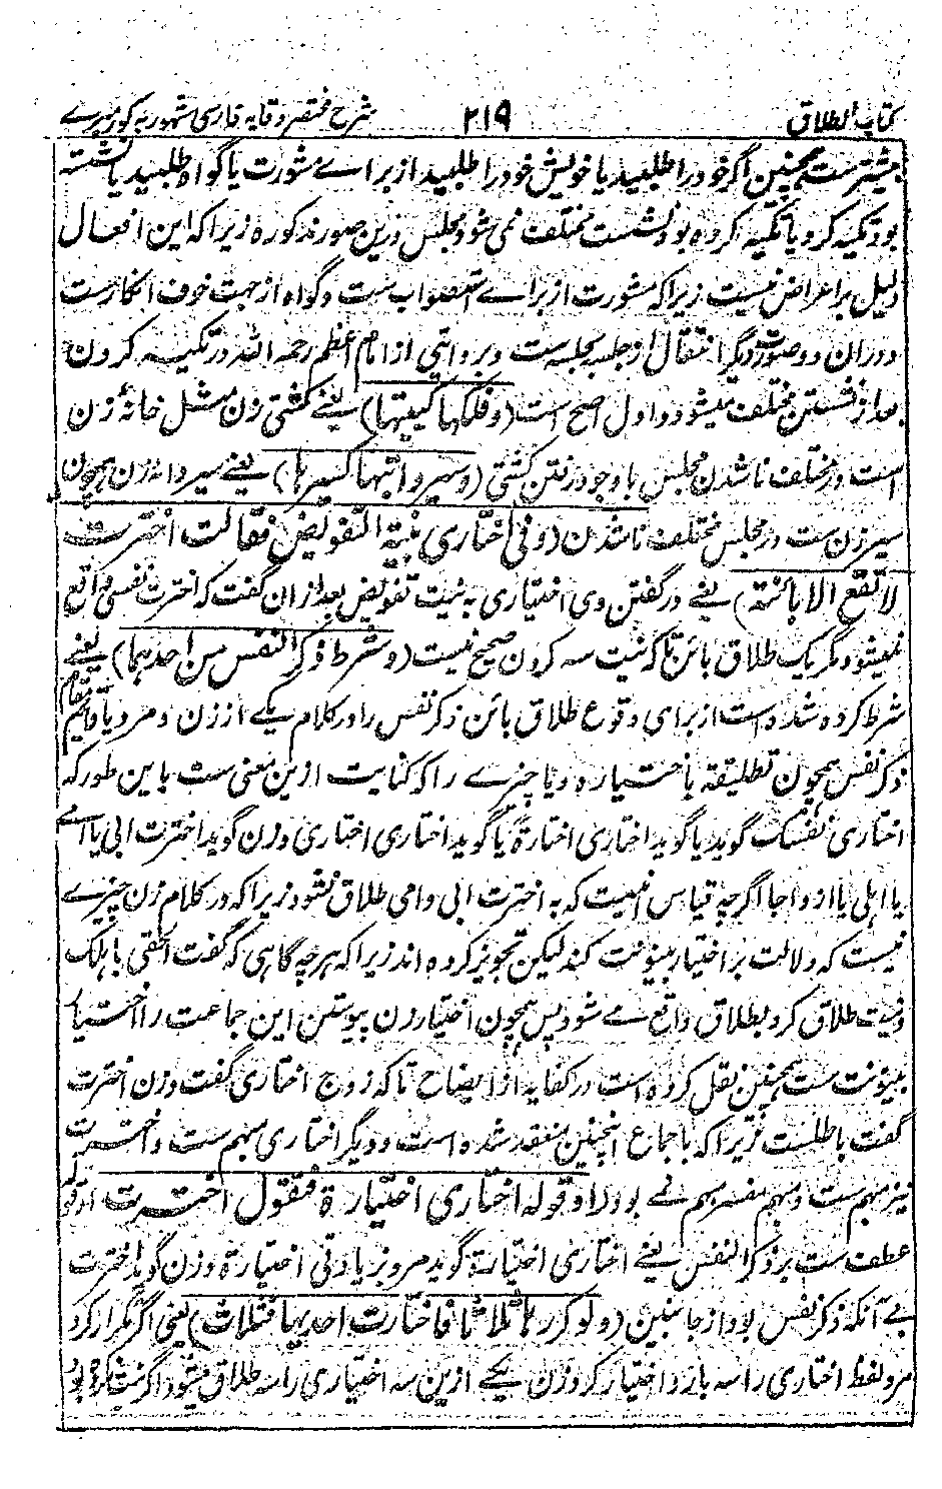 کتاب الطلاق ۲۱۹ شرح مختصر وقایه فارسی مشهور به کور میرے
بیشترست همچنین اگر خود را طلبید یا خویش خود را طلبید از براے مشورت یا گواه طلبید یا نشسته
بود تکیه کرد یا تکیه کرده بود نشست مختلف نمی شود مجلس درین صور مذکوره زیرا که این افعال
دلیل بر اعراض نیست زیرا که مشورت از براے استصواب ست و گواه از جهت خوف انکارست
دوران دو صورت دیگر انتقال از جلسه بجلسه ست و بروایتی از امام اعظم رحمه الله در تکیه کردن
بعد از نشستن مختلف میشود و اول اصح است (وفلکها کبیتها) یعنے کشتی زن مثل خانهٔ زن
است در مختلف ناشدن مجلس با وجود رفتن کشتی (وسیر دابتها کسیرها) یعنے سیر دابه زن همچون
سیر زن ست در مجلس مختلف ناشدن (وفی اختاری بنیة التفویض فقالت اخترت
لا تقع الا بائنة) یعنے در گفتن وی اختیاری به نیت تفویض بعد ازان گفت که اخترت نفسی واقع
نمیشود مگر یک طلاق بائن تا که نیت سه کردن صحیح نیست (وشرط ذکر النفس من احدهما) یعنے
شرط کرده شده است از برای وقوع طلاق بائن ذکر نفس را در کلام یکے از زن و مرد یا قایم مقام
ذکر نفس همچون تطلیقه یا اختیاره و یا چیزے را که کنایت ازین معنی ست باین طور که
اختاری نفسک گوید یا گوید اختاری اختارة یا گوید اختاری اختاری و زن گوید اخترت ابی یا امے
یا اهلی یا ازواجا اگر چه قیاس انیست که به اخترت ابی و امی طلاق نشود زیرا که در کلام زن چیزے
نیست که دلالت بر اختیار بینونت کند لیکن تجویز کرده اند زیرا که هر چه گاهی که گفت الحقی باهلک
و نیت طلاق کرد بطلاق واقع مے شود پس همچون اختیار زن پیوستن این جماعت را اختیار
بینونت ست همچنین نقل کرده است در کفایه از ایضاح تا که زوج اختاری گفت و زن اخترت
گفت باطلست زیرا که با جماع اینچنین منعقد شده است و دیگر اختاری مبهم ست و اخترت
نیز مبهم ست و مبهم مفسر مبهم نمے بود (او قوله اختاری اختیارة فتقول اخترت) او قوله
عطف ست بر ذکر النفس یعنے اختاری اختیارة گوید مرد بزیادتی اختیارة و زن گوید اخترت
بے آنکه ذکر نفس بود از جانبین (ولو کررها ثلاثا فاختارت احدیها فثلاث) یعنی اگر تکرار کرد
مرد لفظ اختاری را سه بار و اختیار کرد زن یکے ازین سه اختیاری را سه طلاق میشود اگر